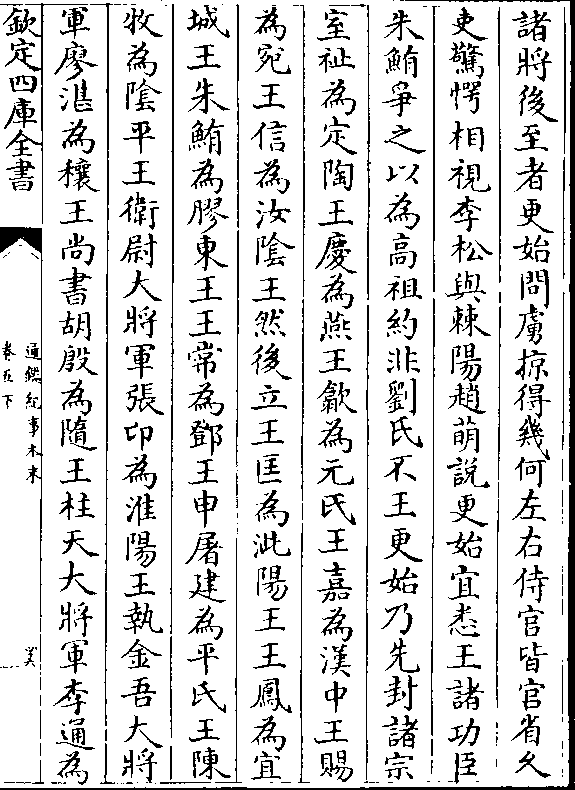 諸將後至者更始問虜掠得幾何左右侍官皆宮省久
吏驚愕相視李松與棘陽趙萌說更始宜悉王諸功臣
朱鮪爭之以為高祖約非劉氏不王更始乃先封諸宗
室祉為定陶王慶為燕王歙為元氏王嘉為漢中王賜
為宛王信為汝陰王然後立王匡為泚陽王王鳳為宜
城王朱鮪為膠東王王常為鄧王申屠建為平氏王陳
牧為陰平王衛尉大將軍張卬為淮陽王執金吾大將
軍廖湛為穰王尚書胡殷為隨王柱天大將軍李通為
欽定四庫全書
通鑑紀事本末
卷五下